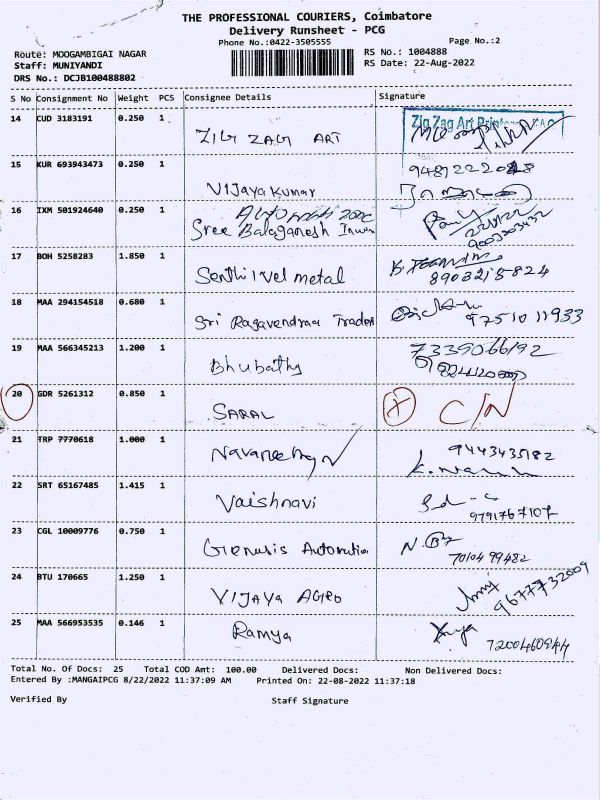 THE PROFESSIONAL COURIERS, Coimbatore
Delivery Runsheet - PCG
Phone No.:0422-3505555
Page No.:2
Route: MOOGAMBIGAI NAGAR
RS No.: 1004888
Staff: MUNIYANDI
RS Date: 22-Aug-2022
DRS No.: DCJB100488802
S No Consignment No Weight PCS Consignee Details Signature
14 CUD 3183191 0.250 1
Zig Zag Art
ZIG ZAG ART
15 KUR 693943473 0.250 1
VIJaya Kumar
16 IXM 501924640 0.250 1
Sree Balaganesh
17 BOH 5258283 1.850 1
Senthilvel metal
8903215824
18 MAA 294154518 0.680 1
Sri Ragavendraa Trades
9751011933
19 MAA 566345213 1.200 1
7339066192
Bhubathy
20 GDR 5261312 0.850 1
SARAL C/N
21 TRP 7770618 1.000 1
9443435182
22 SRT 65167485 1.415 1
Vaishnavi
9791767107
23 CGL 10009776 0.750 1
Genusis Automation
7010499482
24 BTU 170665 1.250 1
VIJAYA AGRO
9677732009
25 MAA 566953535 0.146 1
Ramya
7200460944
Total No. Of Docs: 25 Total COD Amt: 100.00 Delivered Docs: Non Delivered Docs:
Entered By :MANGAIPCG 8/22/2022 11:37:09 AM Printed On: 22-08-2022 11:37:18
Verified By Staff Signature